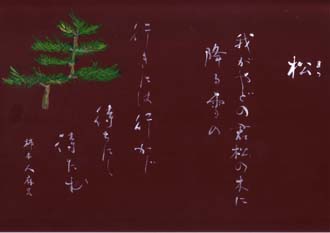 松
まつ
我がやどの君松の木に
降る雪の
行きには行かじ
待ちにし
待たむ
柿本人麻呂